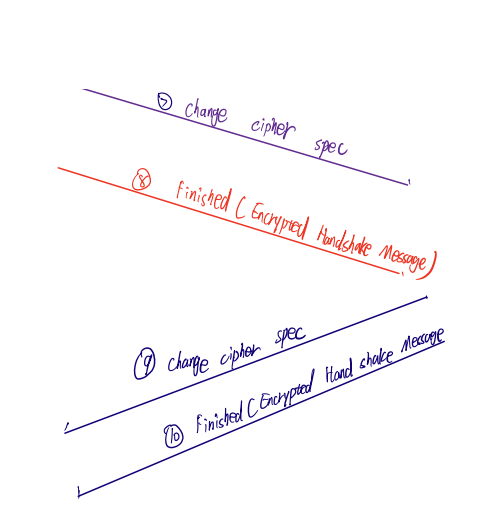 ⑦ change cipher spec
⑧ Finished ( Encrypted Handshake Message )
⑨ change cipher spec
⑩ Finished ( Encrypted Hand shake Message